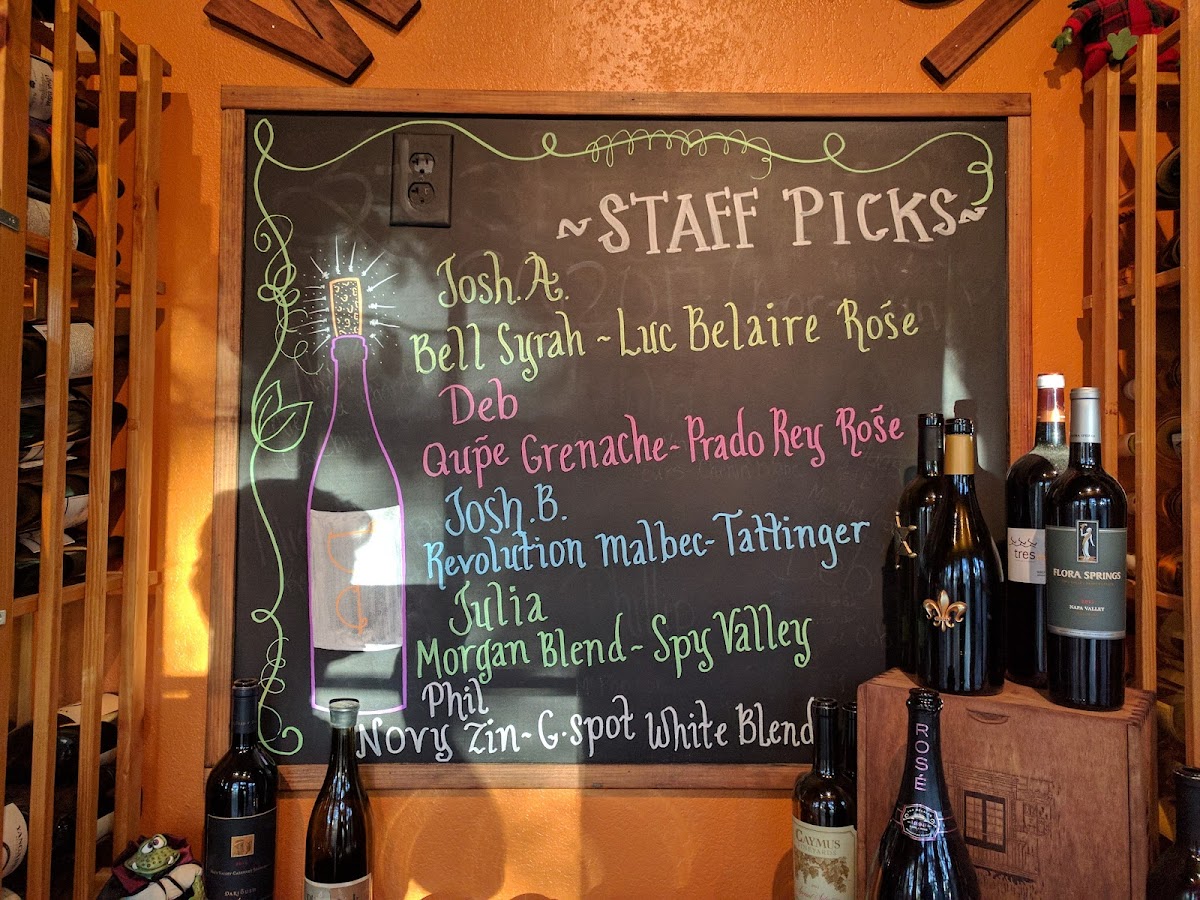 ~STAFF PICKS~
Josh.A.
Bell Syrah ~ Luc Belaire Rośe
Deb
Qup̃e Grenache- Prado Rey Rośe
Josh.B.
Revolution Malbec- Tattinger
Julia
Morgan Blend- Spy Valley
Phil
Novy Zin- G.Spot White Blend
tres
FLORA SPRINGS
NAPA VALLEY
ROSÉ
CAYMUS
VINEYARDS
DARIOUSH